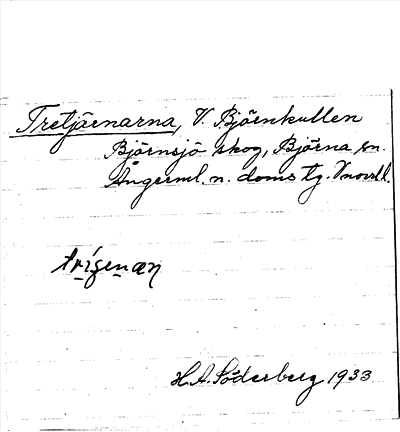 Tretjärnarna, V. Björnkullen
Björnsjö skog, Björna sn.
Ångerml. n. doms tg. Vnorrl.
H.A. Söderberg 1933